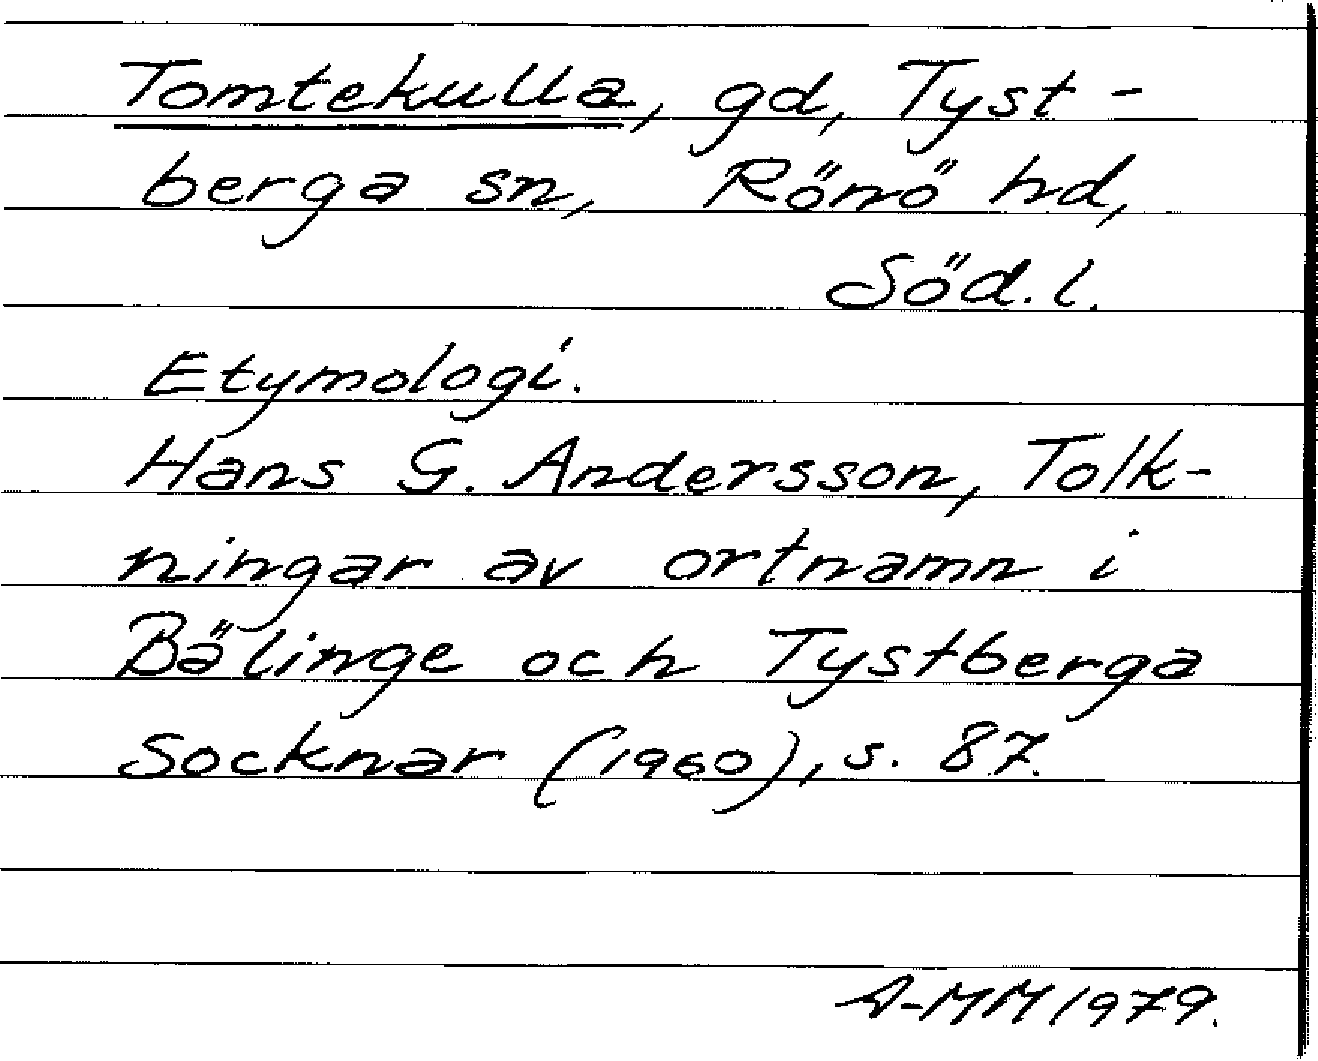 Tomtekulla, gd, Tyst-
berga sn, Rönö hd,
Söd.l.
Etymologi.
Hans G. Andersson, Tolk-
ningar av ortnamn i
Bälinge och Tystberga
Socknar (1960), s. 87.
A-MM 1979.